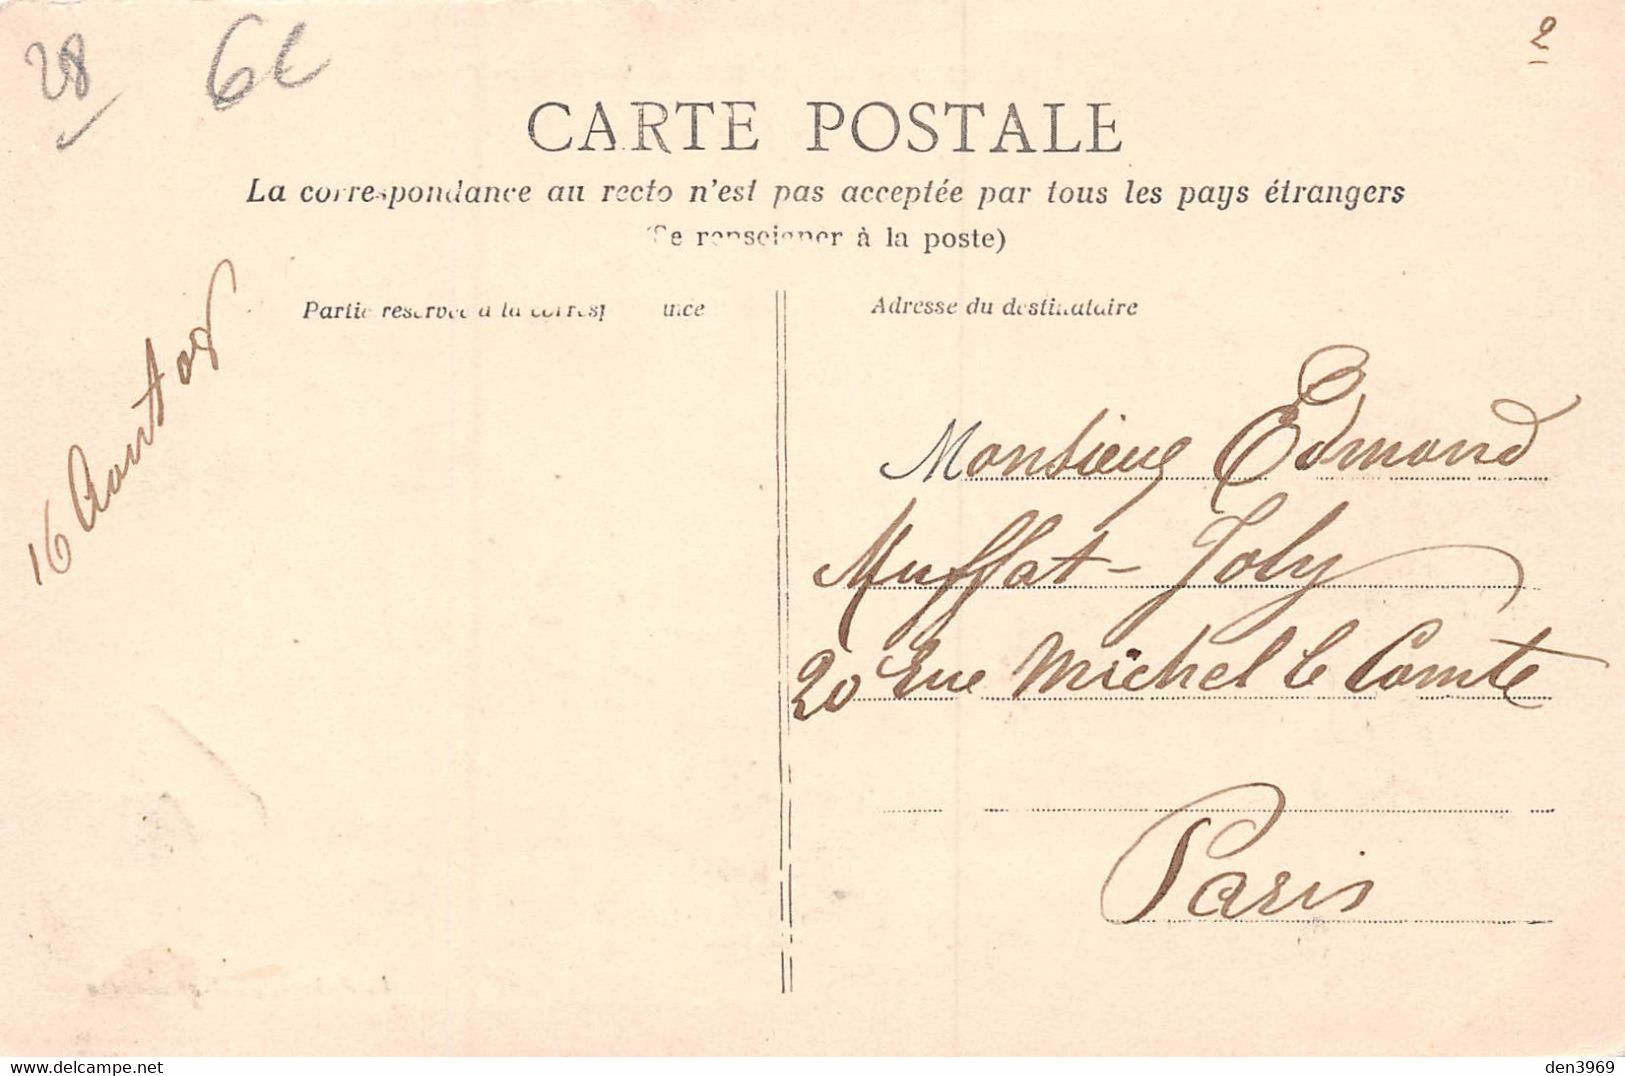 28
6€
2
CARTE POSTALE
La correspondance au recto n'est pas acceptée par tous les pays étrangers
(Se renseigner à la poste)
Partie réservée à la corresp    ance
Adresse du destinataire
16 Aout 08
Monsieur Edmond
Muffat-Joly
20 Rue Michel le Comte
Paris
den3969